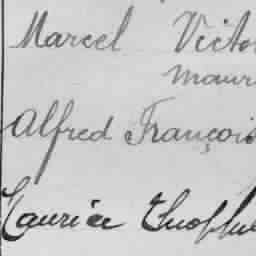 Marcel Victo
Maur
Alfred François
Maurice